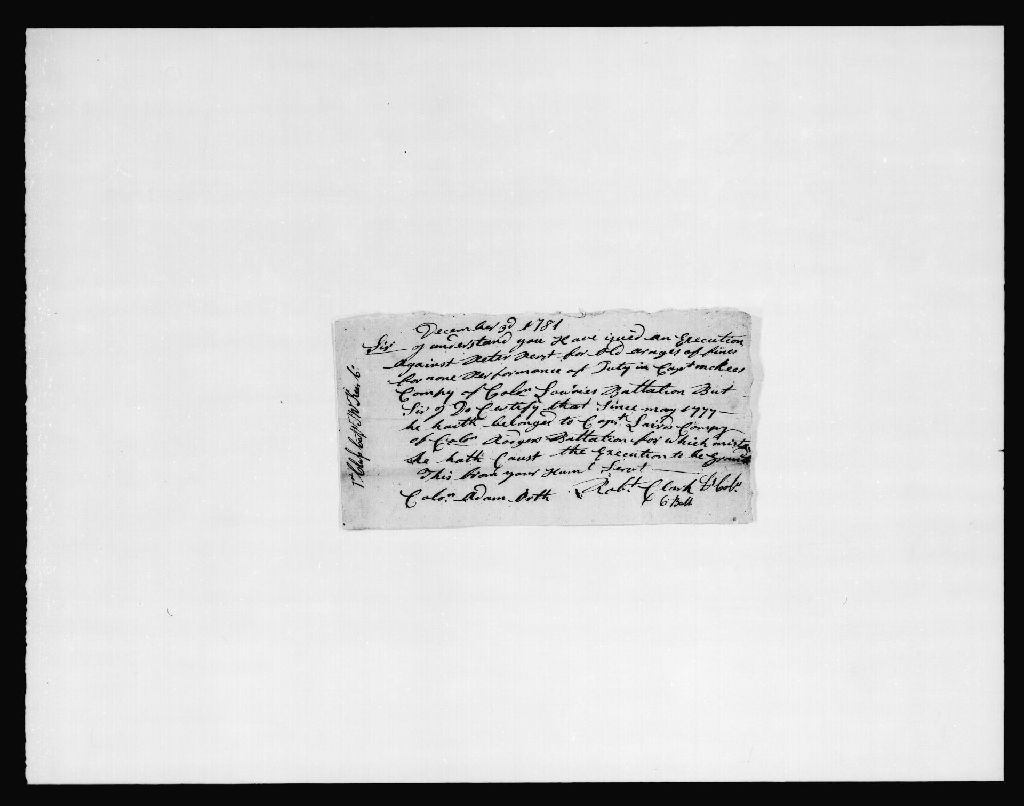 December 3d 1781
Sir I understand you Have isued an Execution
Against Peter for old arages of fines
for none Performance of Duty in Capt mcKees
Compy of Colon Lowries Battalion But
Sir I Do Certify that Since may 1777
he hauth belonged to Capt Lairds Compy
of Colon Rodgers Battalion for which
he hath Caust the Execution to be
This from your Humt Servt
Robt Clark Lt Colo
Colon Adam Orth
6 Batt